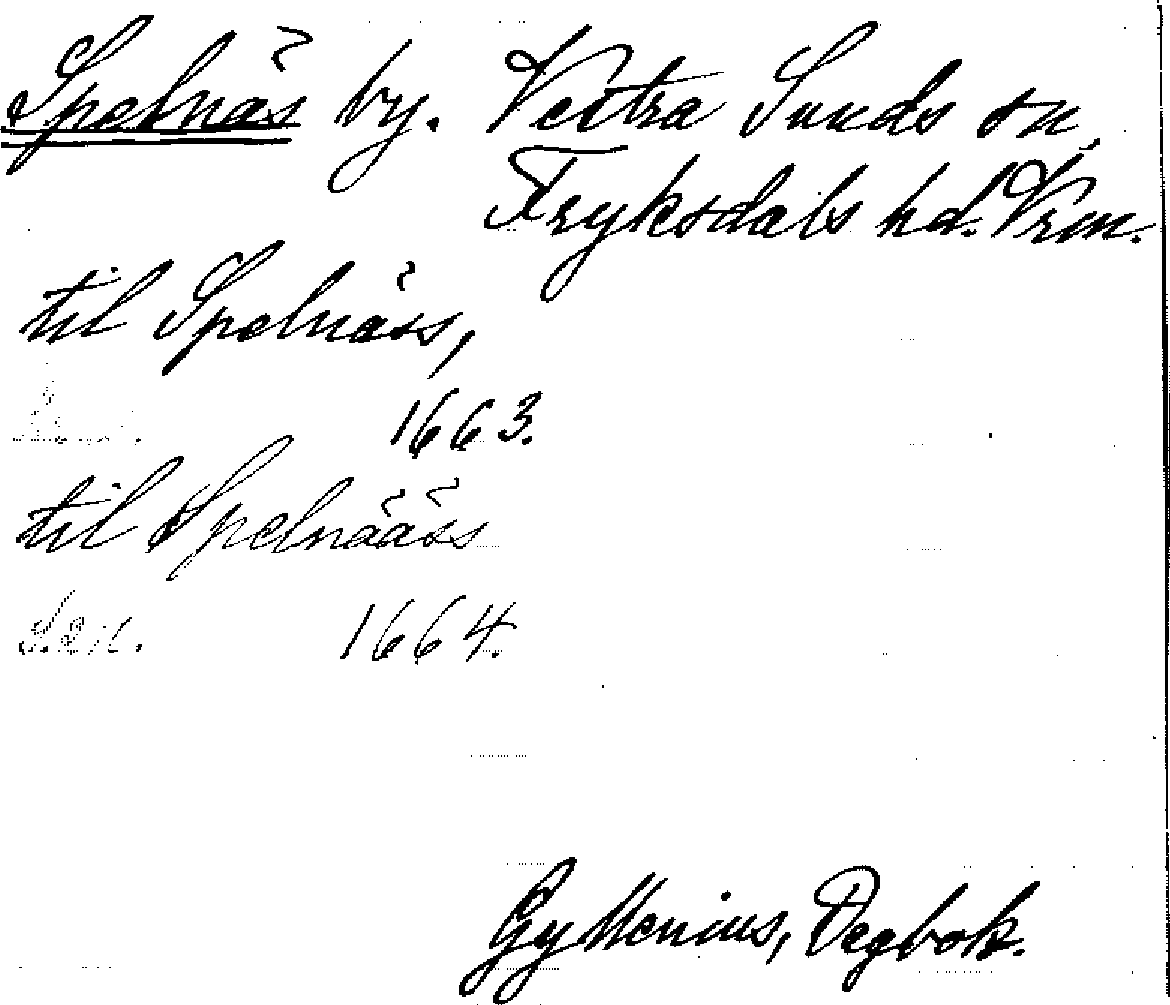 Spelnäs by. Vestra Sunds sn,
Fryksdals hd. Vrm.
til Spelnäss,
1663.
til Spelnääss
S. 211. 1664.
Gyllenius, Degbok.